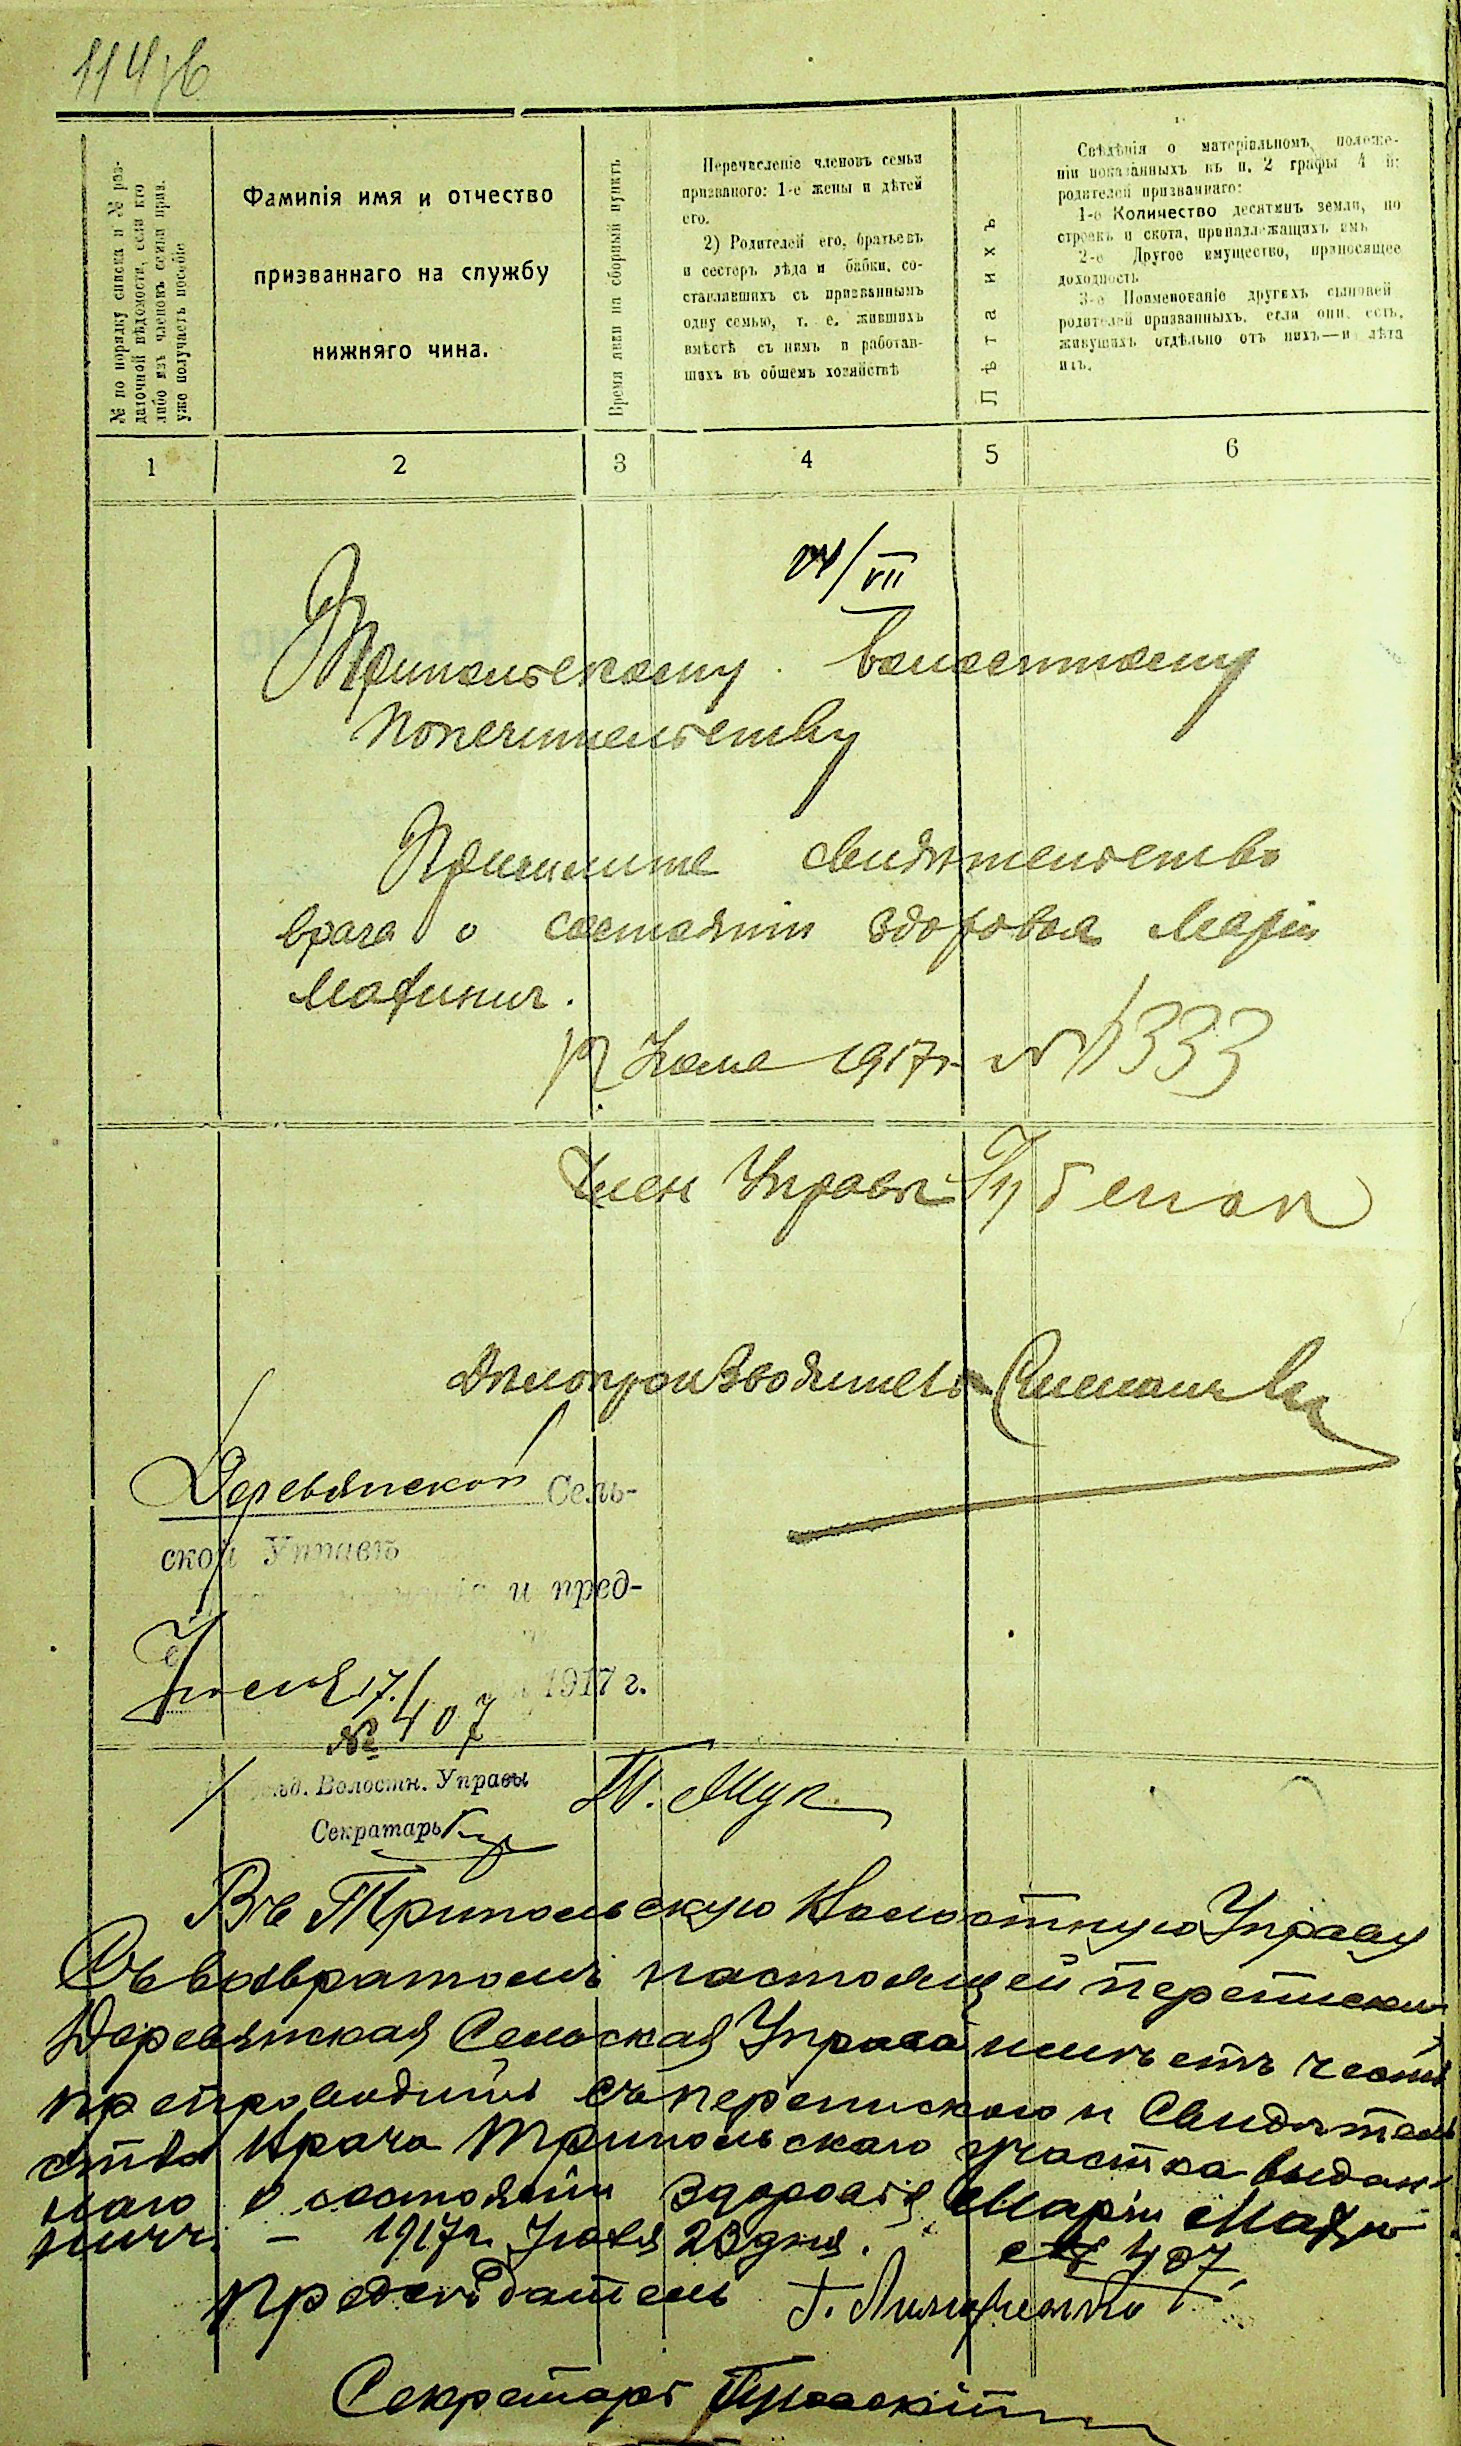 № по порядку списка и № раз-
даточной вѣдомости, если кто
либо изъ членовъ семьи призв.
уже получаетъ пособіе
Фамилія имя и отчество
призваннаго на службу
нижняго чина.
Время явки на сборный пунктъ
Перечисленіе членовъ семьи
призваного: 1-е жены и дѣтей
его.
2) Родителей его, братьевъ
и сестеръ дѣда и бабки, со-
ставлявшихъ съ призваннымъ
одну семью, т. е. жившихъ
вмѣстѣ съ нимъ и работав-
шихъ въ общемъ хозяйствѣ
Лѣта ихъ
Свѣдѣнія о матеріальномъ положе-
ніи показанныхъ въ п. 2 графы 4 и:
родителей призваннаго:
1-е Количество десятинъ земли, по
строекъ и скота, принадлежащихъ имъ
2-е Другое имущество, приносящее
доходность
3-е Поименованіе другихъ сыновей
родителей призванныхъ, если они есть,
живущихъ отдѣльно отъ нихъ—и лѣта
ихъ.
1 2 3 4 5 6
/VII
Трипольскому волостному
попечительству
Пришлите свидѣтельство
врача о состояніи здоровья Маріи
Мафинич.
Июля 1917 г. №1333
Член Управы Губенок
Дѣлопроизводитель
Деревянской Сель-
ской Управѣ
и пред-
Июля 17 1917 г.
№ 407
Предсѣд. Волостн. Управы
Секратарь
Въ Трипольскую Волостную Управу
Съ возвратомъ настоящей переписки
Деревянская Сельская Управа имѣетъ честь
препроводить съ перепискою и Свидѣтель
ство Врача Трипольскаго участка выдан-
наго о состояніи здоровія Маріи Мафи
ничъ. – 1917 г. Июля 23 дня. № 407.
Предсѣдатель
Секретарь